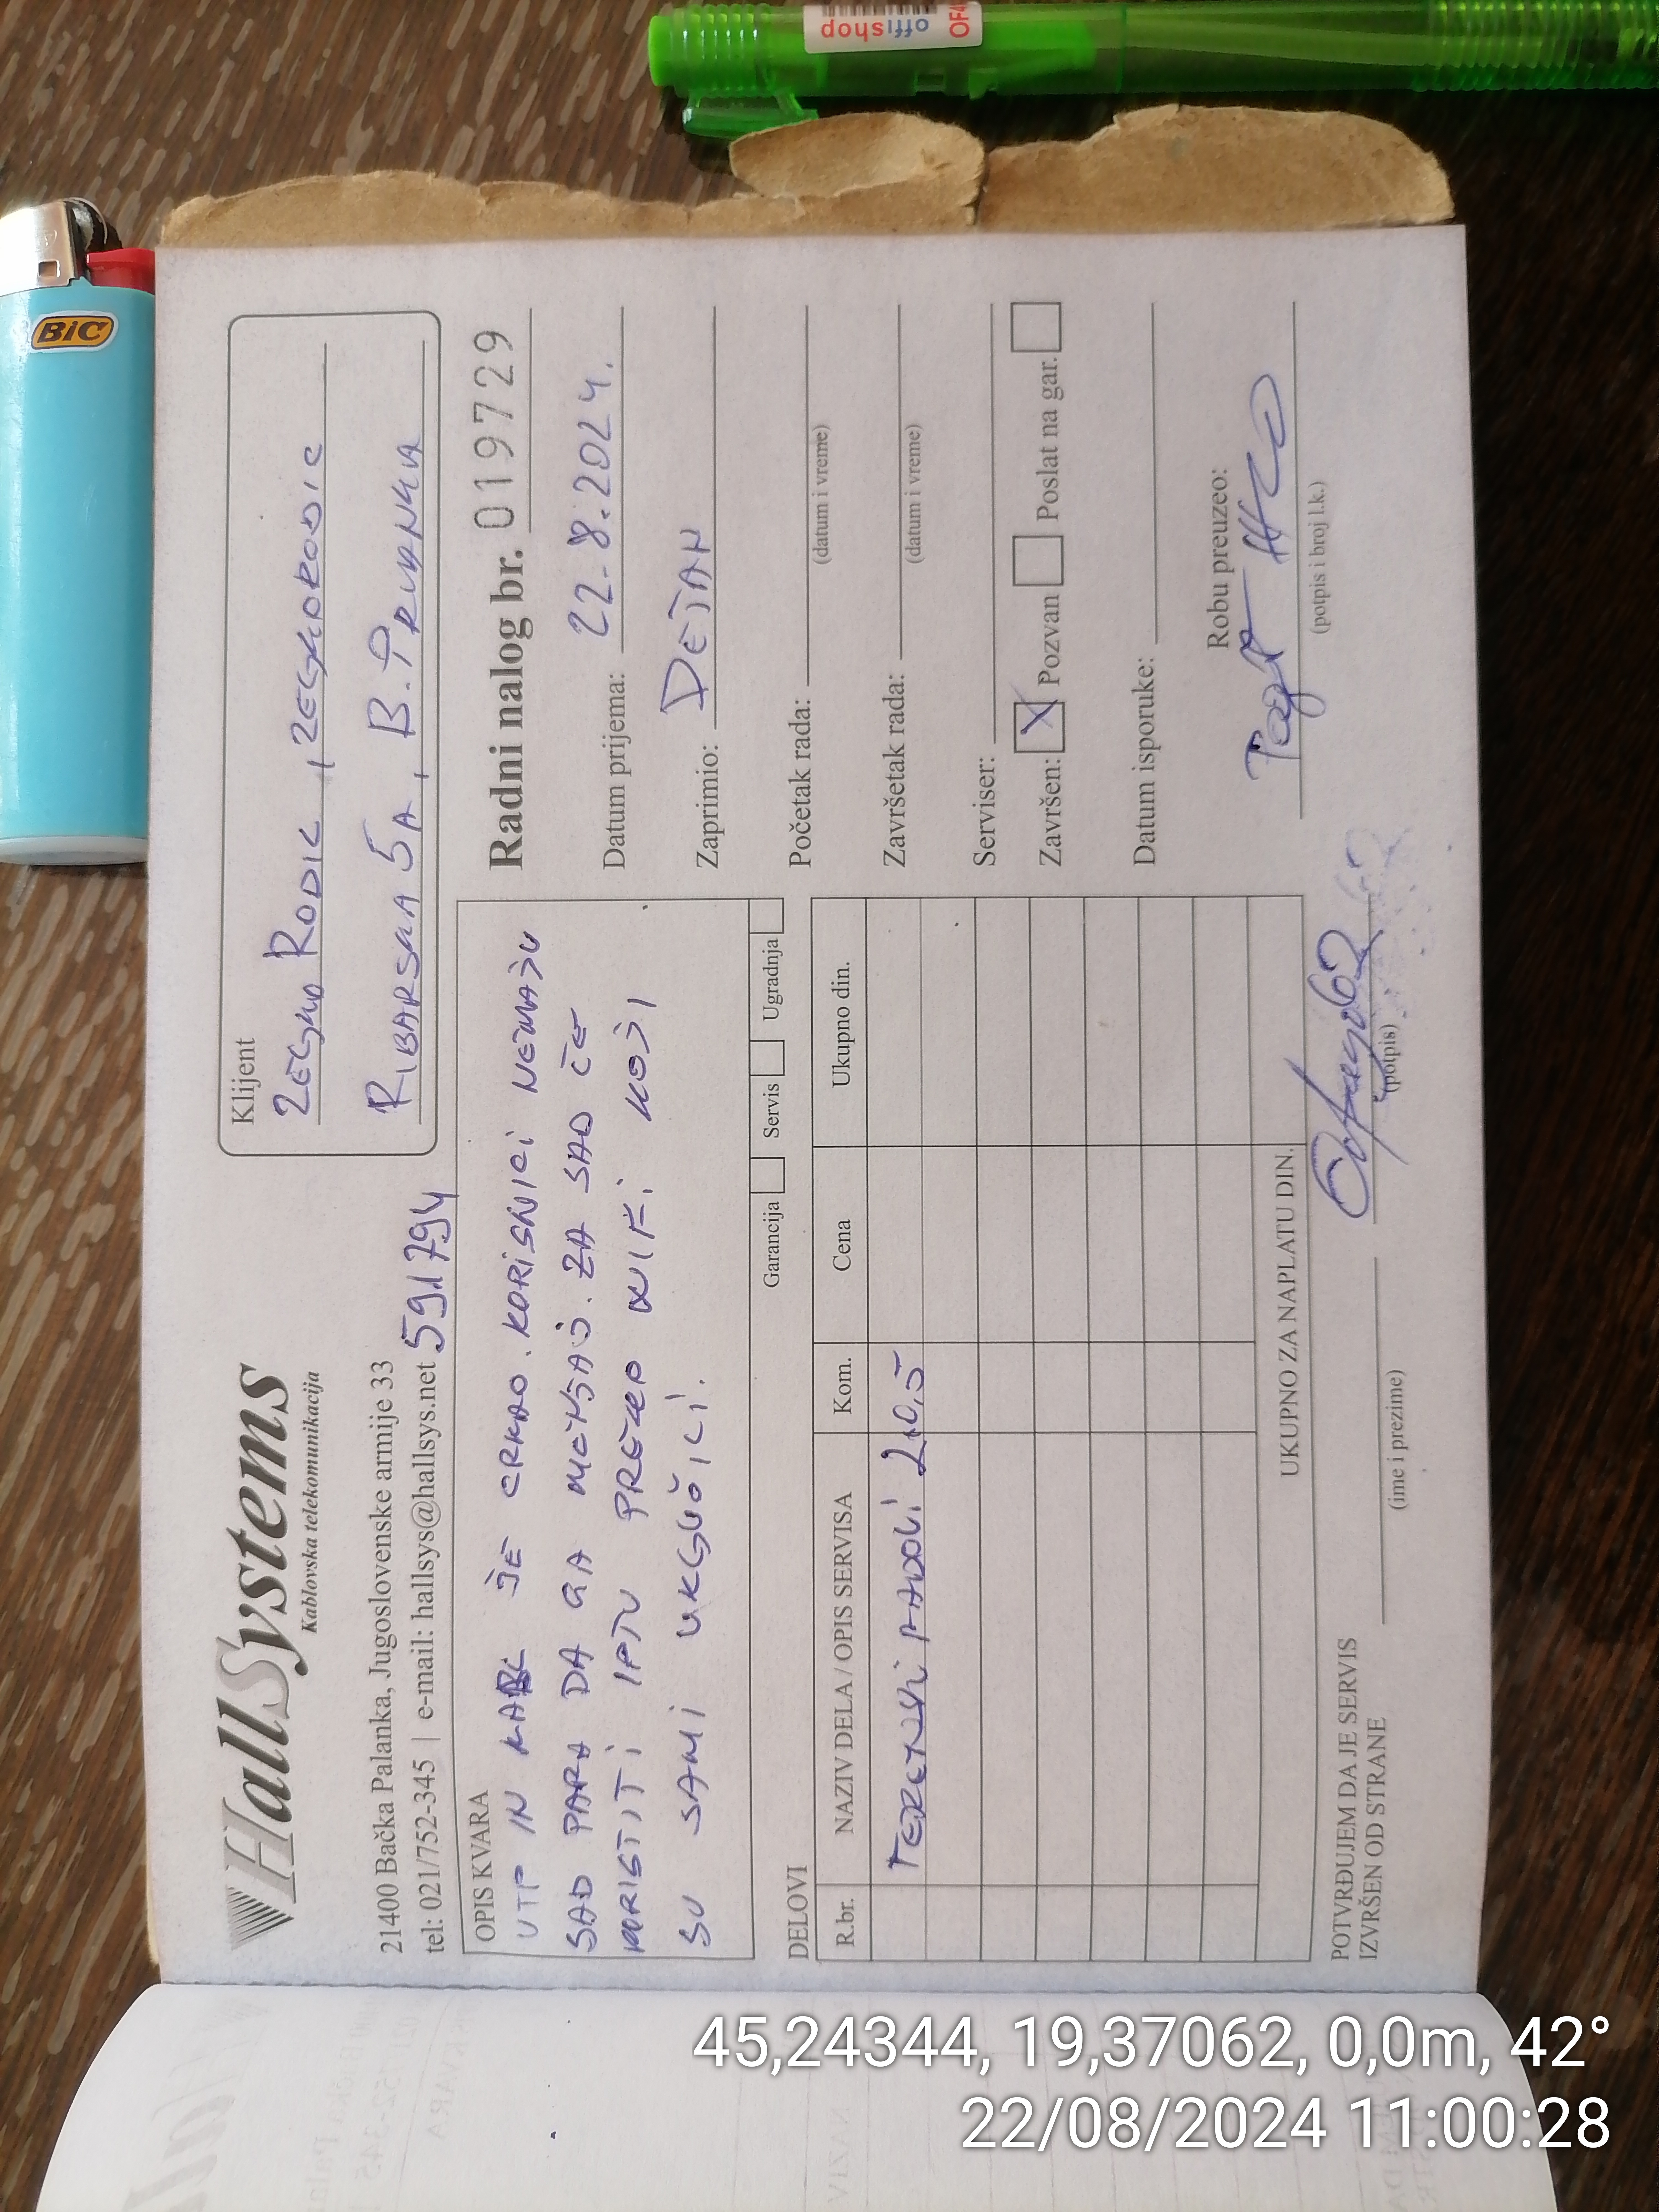 HallSystems
Kablovska telekomunikacija
21400 Bačka Palanka, Jugoslovenske armije 33
tel: 021/752-345 | e-mail: hallsys@hallsys.net
591794
Klijent
RODIC
RIBARSKA 5A, B.
OPIS KVARA
UTP IN KABL JE CRKAO. KORISNICI NEMAJU
SAD PARA DA GA MENJAJU. ZA SAD ĆE
KORISTITI IPTV PREKO WIFI KOJI
SU SAMI UKLJUČILI.
Garancija Servis Ugradnja
Radni nalog br. 019729
Datum prijema: 22.8.2024.
Zaprimio: DEJAN
Početak rada:
(datum i vreme)
Završetak rada:
(datum i vreme)
Serviser:
Završen: X Pozvan Poslat na gar.
Datum isporuke:
Robu preuzeo:
(potpis i broj l.k.)
DELOVI
R.br. NAZIV DELA / OPIS SERVISA Kom. Cena Ukupno din.
TERENSKI RADOVI 2x0,5
UKUPNO ZA NAPLATU DIN.
POTVRĐUJEM DA JE SERVIS
IZVRŠEN OD STRANE
(ime i prezime)
(potpis)
BIC
offishop
45,24344, 19,37062, 0,0m, 42°
22/08/2024 11:00:28